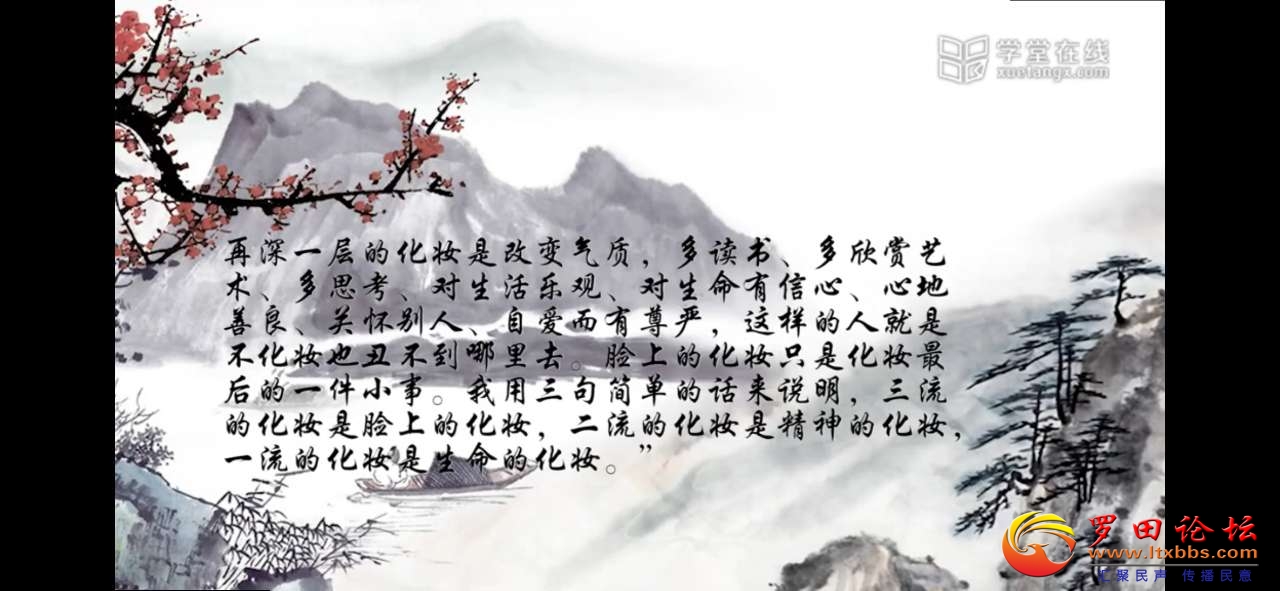 学堂在线
xuetangx.com
再深一层的化妆是改变气质，多读书、多欣赏艺
术、多思考、对生活乐观、对生命有信心、心地
善良、关怀别人、自爱而有尊严，这样的人就是
不化妆也丑不到哪里去。脸上的化妆只是化妆最
后的一件小事。我用三句简单的话来说明，三流
的化妆是脸上的化妆，二流的化妆是精神的化妆，
一流的化妆是生命的化妆。”
罗田论坛
www.ltxbbs.com
汇聚民声 传播民意